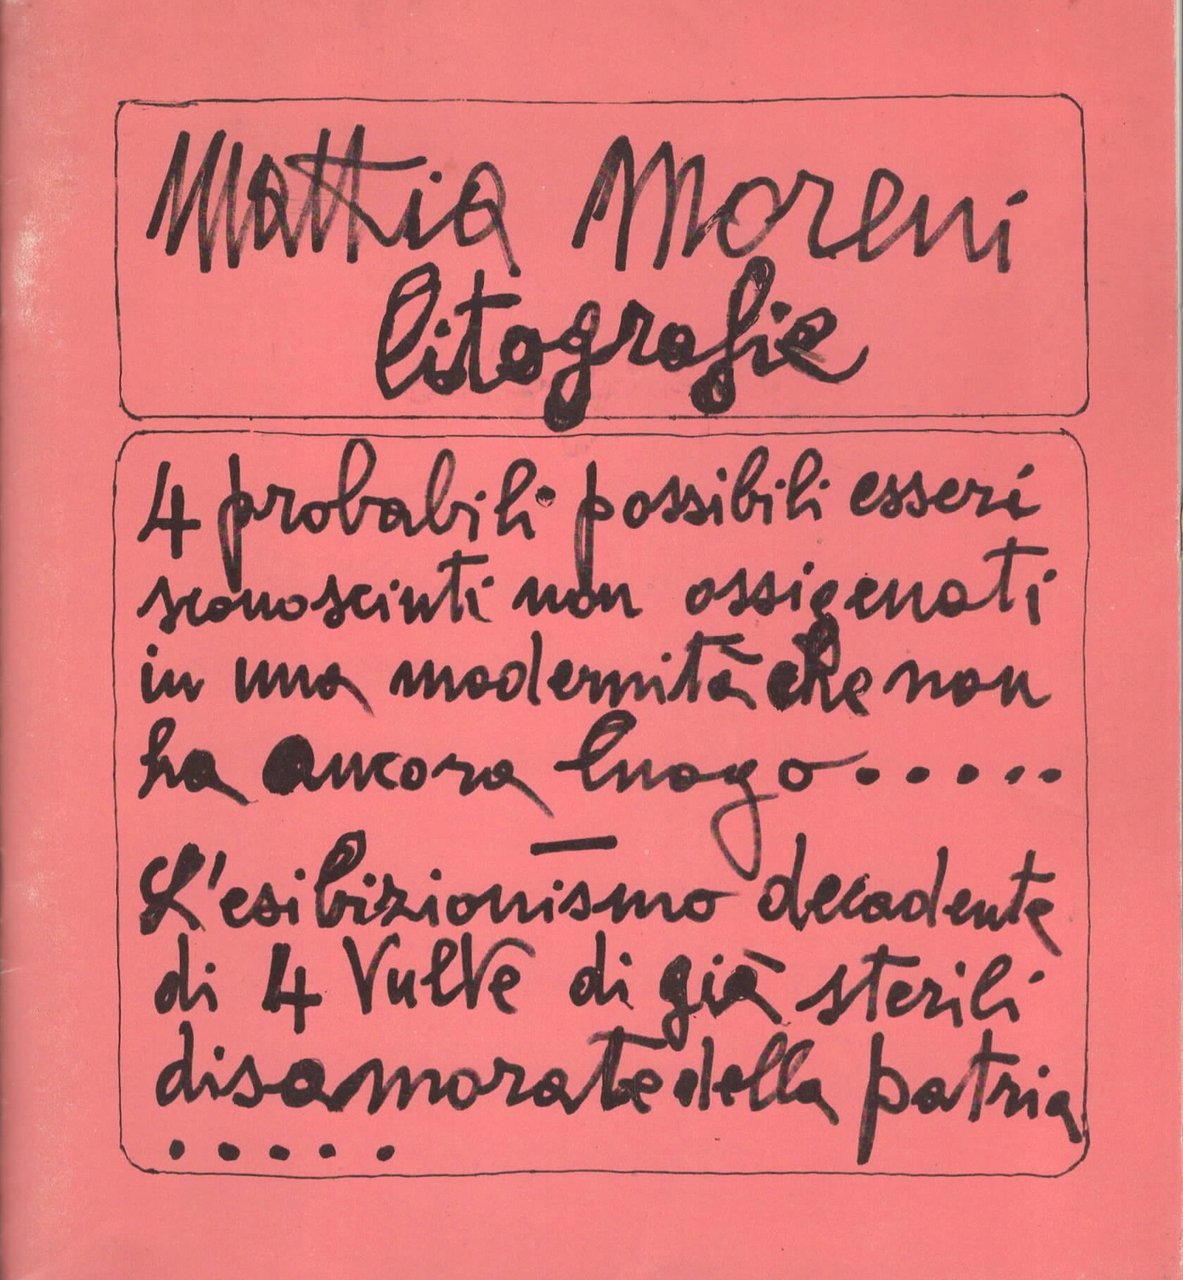 Mattia Moreni
litografie
4 probabili possibili esseri
sconosciuti non ossigenati
in una modernità che non
ha ancora luogo.....
—
L'esibizionismo decadente
di 4 Vulve di già sterili
disamorate della patria
.....